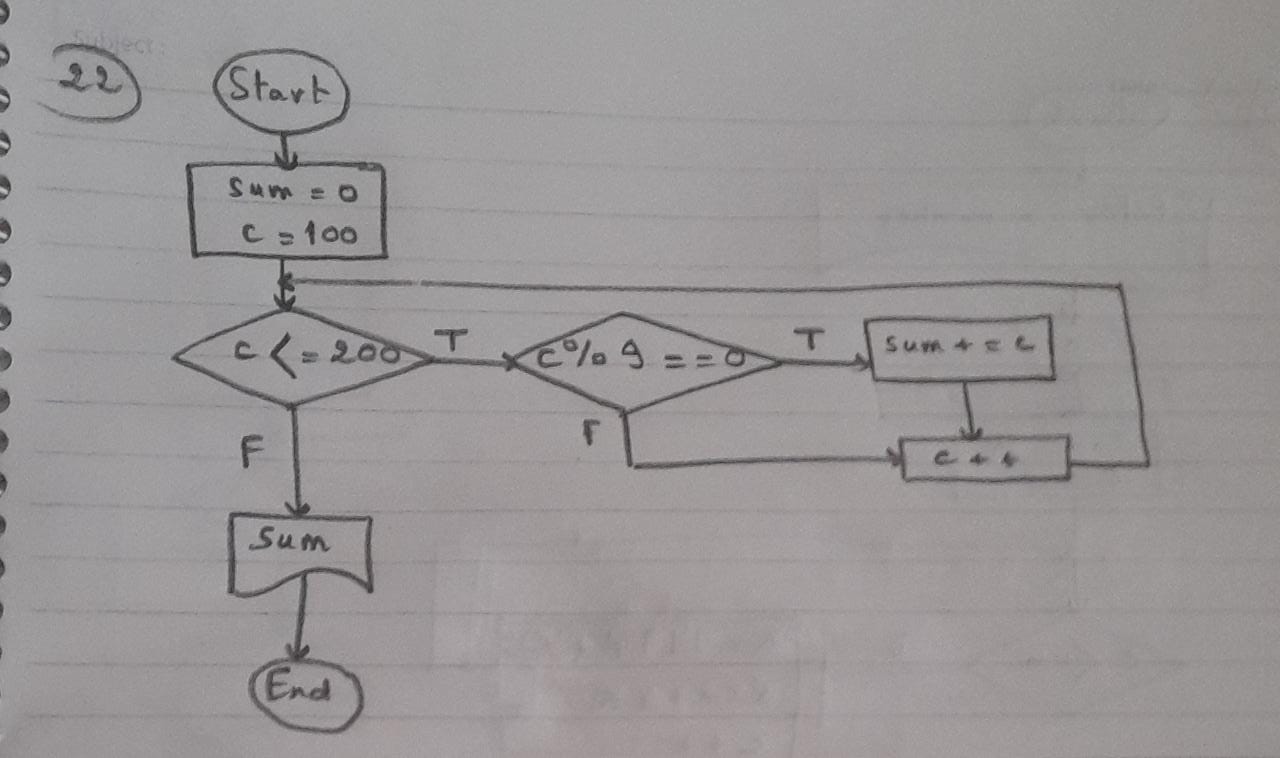 Subject:
22
Start
Sum = 0
C = 100
C <= 200
T
C % 9 == 0
T
Sum += c
F
F
c++
Sum
End